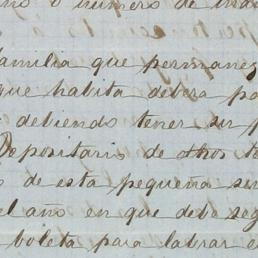 no o número de indi
familia que permanes
que habita debera pa
debiendo tener su p
Depositario de dhos to
s de esta pequeña ser
el año en que debe seg
boleta para labrar e